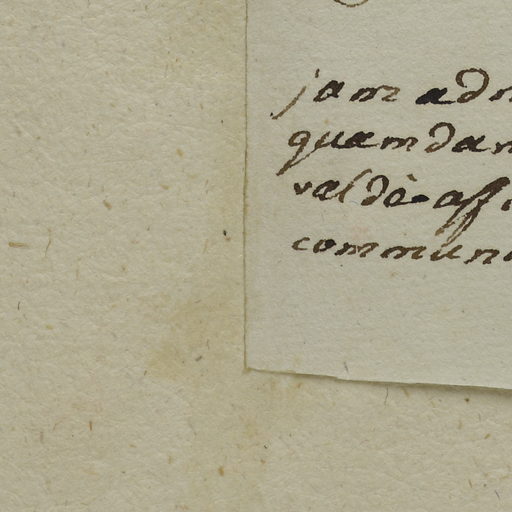 jam adm
quamdam
valdè aff
commun